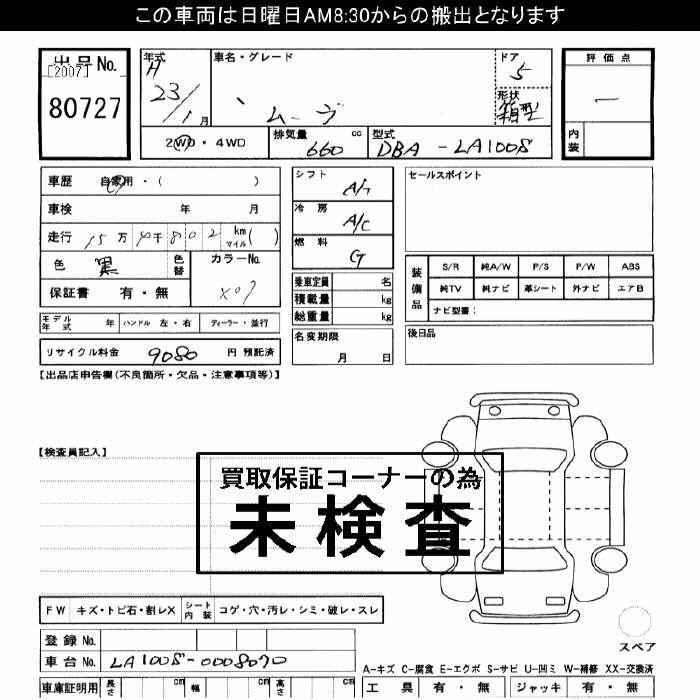 この車両は日曜日AM8:30からの搬出となります
出品No.
[2007]
80727
年式
H
23/1月
車名・グレード
ムーヴ
ドア
5
形状
箱型
評価点
ー
内装
2WD・4WD
排気量 660 cc
型式 DBA-LA100S
車歴 自家用・( )
車検 年 月
走行 15万4千802 km マイル( )
色 黒 色替
カラーNo. X07
保証書 有・無
モデル年式 年 ハンドル 左・右 ディーラー・並行
リサイクル料金 9080 円 預託済
シフト
冷房 A/C
燃料 G
乗車定員 名
積載量 kg
総重量 kg
名変期限
月 日
セールスポイント
装備品
S/R 純A/W P/S P/W ABS
純TV 純ナビ 革シート 外ナビ エアB
ナビ型番:
後日品
【出品店申告欄(不良箇所・欠品・注意事項等)】
【検査員記入】
買取保証コーナーの為
未検査
FW キズ・トビ石・割レX シート内装 コゲ・穴・汚レ・シミ・破レ・スレ
スペア
登録No.
車台No. LA100S-0008070
A-キズ C-腐食 E-エクボ S-サビ U-凹ミ W-補修 XX-交換済
車庫証明用 長さ cm 幅 cm 高さ cm
工具 有・無 ジャッキ 有・無